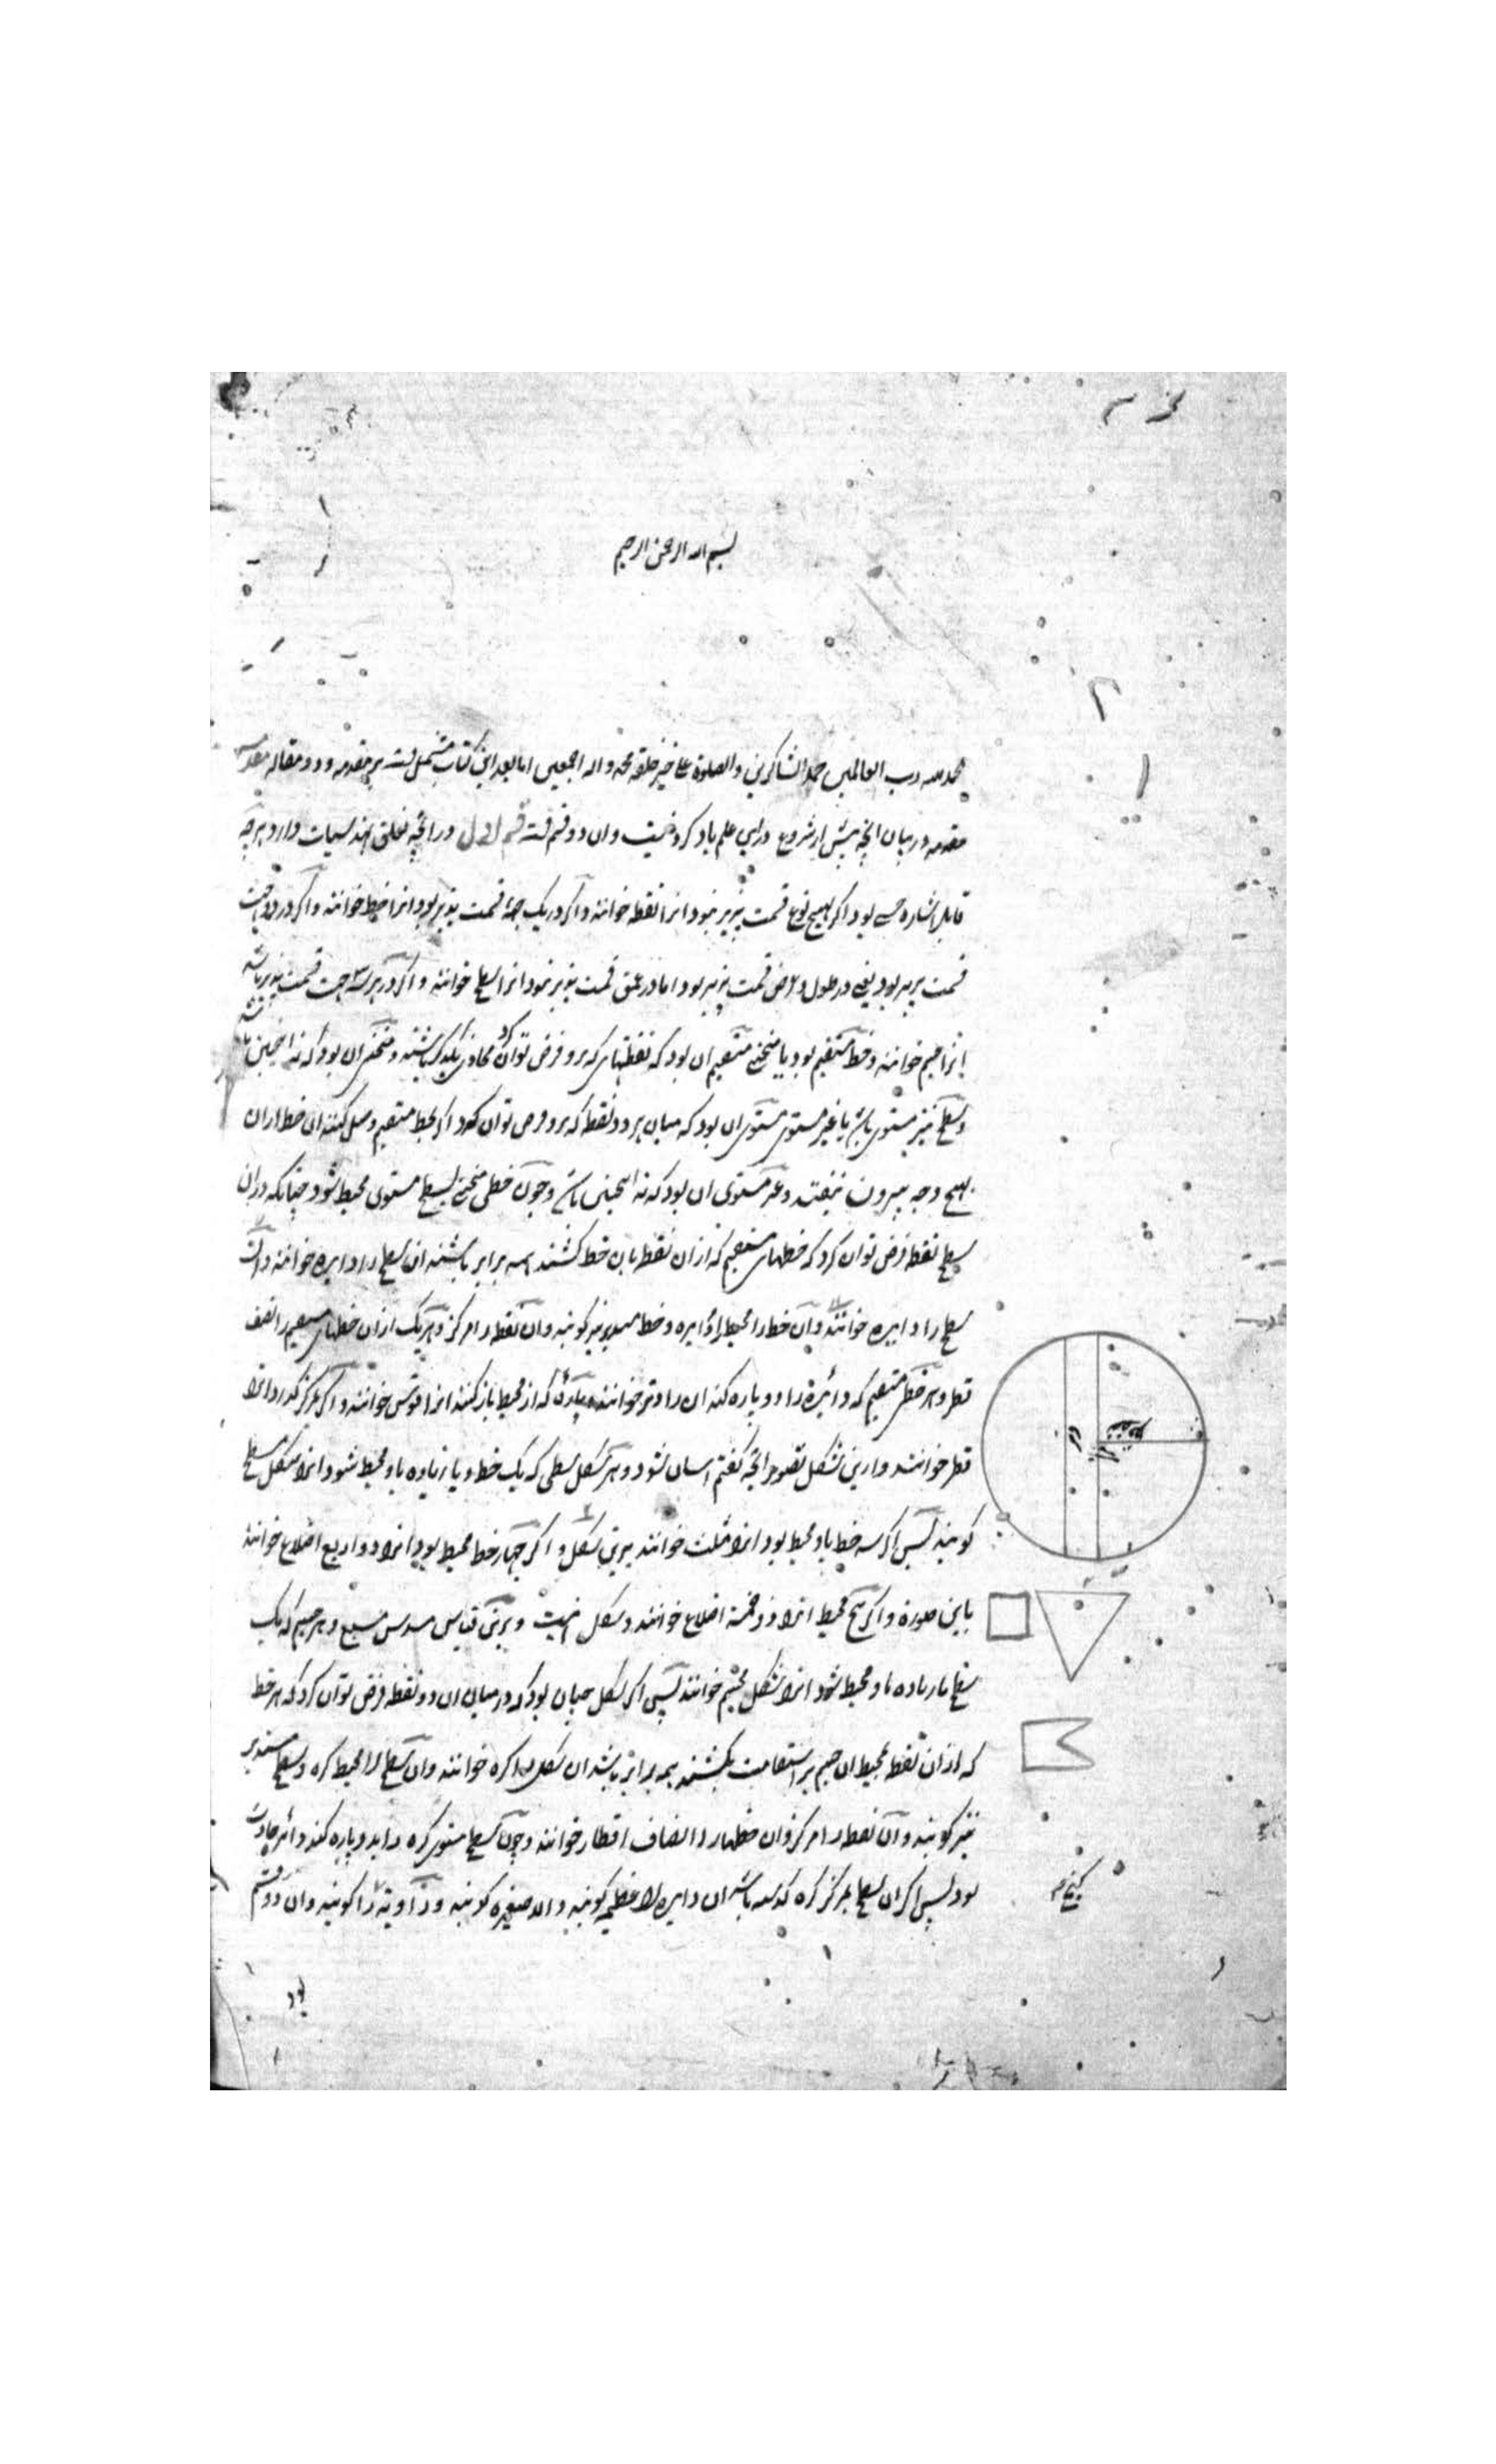 بسم الله الرحمن الرحیم
الحمد لله رب العالمین حمد الشاکرین والصلوة علی خیر خلقه محمد واله اجمعین اما بعد این کتاب مشتمل است بر مقدمه و دو مقاله
مقدمه در بیان انچه پیش از شروع درین علم یاد کردنیست وان دو قسم است قسم اول در انچه تعلق بهندسیات دارد هرچه
قابل اشاره حسی بود اگر بهیچ نوع قسمت پذیر نبود انرا نقطه خوانند واکر در یک جهة قسمت پذیر بود انرا خط خوانند واکر در دو جهت
قسمت پذیر بود یعنی در طول و عرض قسمت پذیر بود اما در عمق قسمت پذیر نبود انرا سطح خوانند واکر در هر سه جهت قسمت پذیر باشد
انرا جسم خوانند وخط مستقیم بود یا منحنی مستقیم ان بود که نقطهای که برو فرض توان کرد محاذی یکدیکر باشند و منحنی ان بود که نه انچنین باشد
وسطح نیز مستوی باشد یا غیر مستوی مستوی ان بود که میان هر دو نقطه که برو فرض توان کرد اکر بخط مستقیم وصل کنند ان خط ازان
بهیچ وجه بیرون نیفتد وغیر مستوی ان بود که نه انچنین باشد وچون خطی منحنی بسطح مستوی محیط شود چنانکه دران
سطح نقطه فرض توان کرد که خطهای مستقیم که از ان نقطه بان خط کشند همه برابر باشند ان سطح را دایره خوانند
سطح را دایره خوانند وآن خط را محیط دایره وخط مستدیر نیز کویند وان نقطه را مرکز وهر یک ازان خطهای مستقیم را نصف
قطر وهر خط مستقیم که دائره را دو پاره کند ان را وتر خوانند وهر پاره که از محیط باز کنند انرا قوس خوانند واکر بمرکز کذرد انرا
قطر خوانند وازین شکل تصور انچه کفتم اسان شود وهر شکل سطحی که یک خط ویا زیاده باو محیط شود انرا شکل مسطح
کویند پس اکر سه خط باو محیط بود انرا مثلث خوانند برین شکل و اکر چهار خط محیط بود انرا ذو اربع اضلاع خوانند
باین صورة واکر پنج محیط انرا ذو خمسة اضلاع خوانند وشکل اینست و برین قیاس مسدس مسبع وهر جسم که یک
سطح یا زیاده باو محیط شود انرا شکل مجسم خوانند پس اکر شکل چنان بود که در میان ان دو نقطه فرض توان کرد که هر خط
که از ان نقطه بمحیط ان جسم بر استقامت بکشند همه برابر باشد ان شکل را کره خوانند وان سطح را محیط کره وسطح مستدیر
نیز کویند و آن نقطه را مرکز وان خطها را انصاف اقطار خوانند وچون سطح مستوی کره را بدو پاره کند دائره حادث
بود پس اکر ان سطح بمرکز کره کذشته باشد ان دایره را عظیمه کویند والا صغیره کویند و زاویه را کویند وان دو قسم
بود